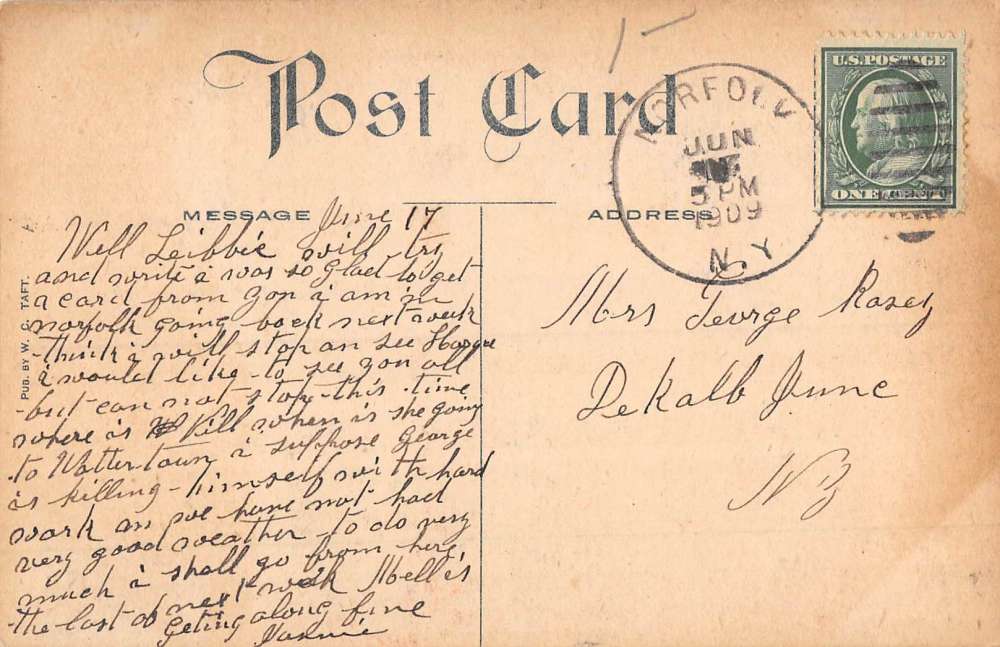 Post Card
NORFOLK
JUN
5 PM
1909
N.Y.
U.S. POSTAGE
ONE CENT
MESSAGE
ADDRESS
PUB. BY W. TAFT.
June 17
Well Leibbie will try
and write i was so glad to get
a card from yon i am in
norfolk going back next week
think i will stop an see
i would like to see yon all
but can not stop this time
where is Nill when is she going
to Watter town i suppose George
is killing himself with hard
work an we have not had
very good weather to do very
much i shall go from here
the last of next week Mell is
geting along fine
Mrs George Rasey
DeKalb June
NY